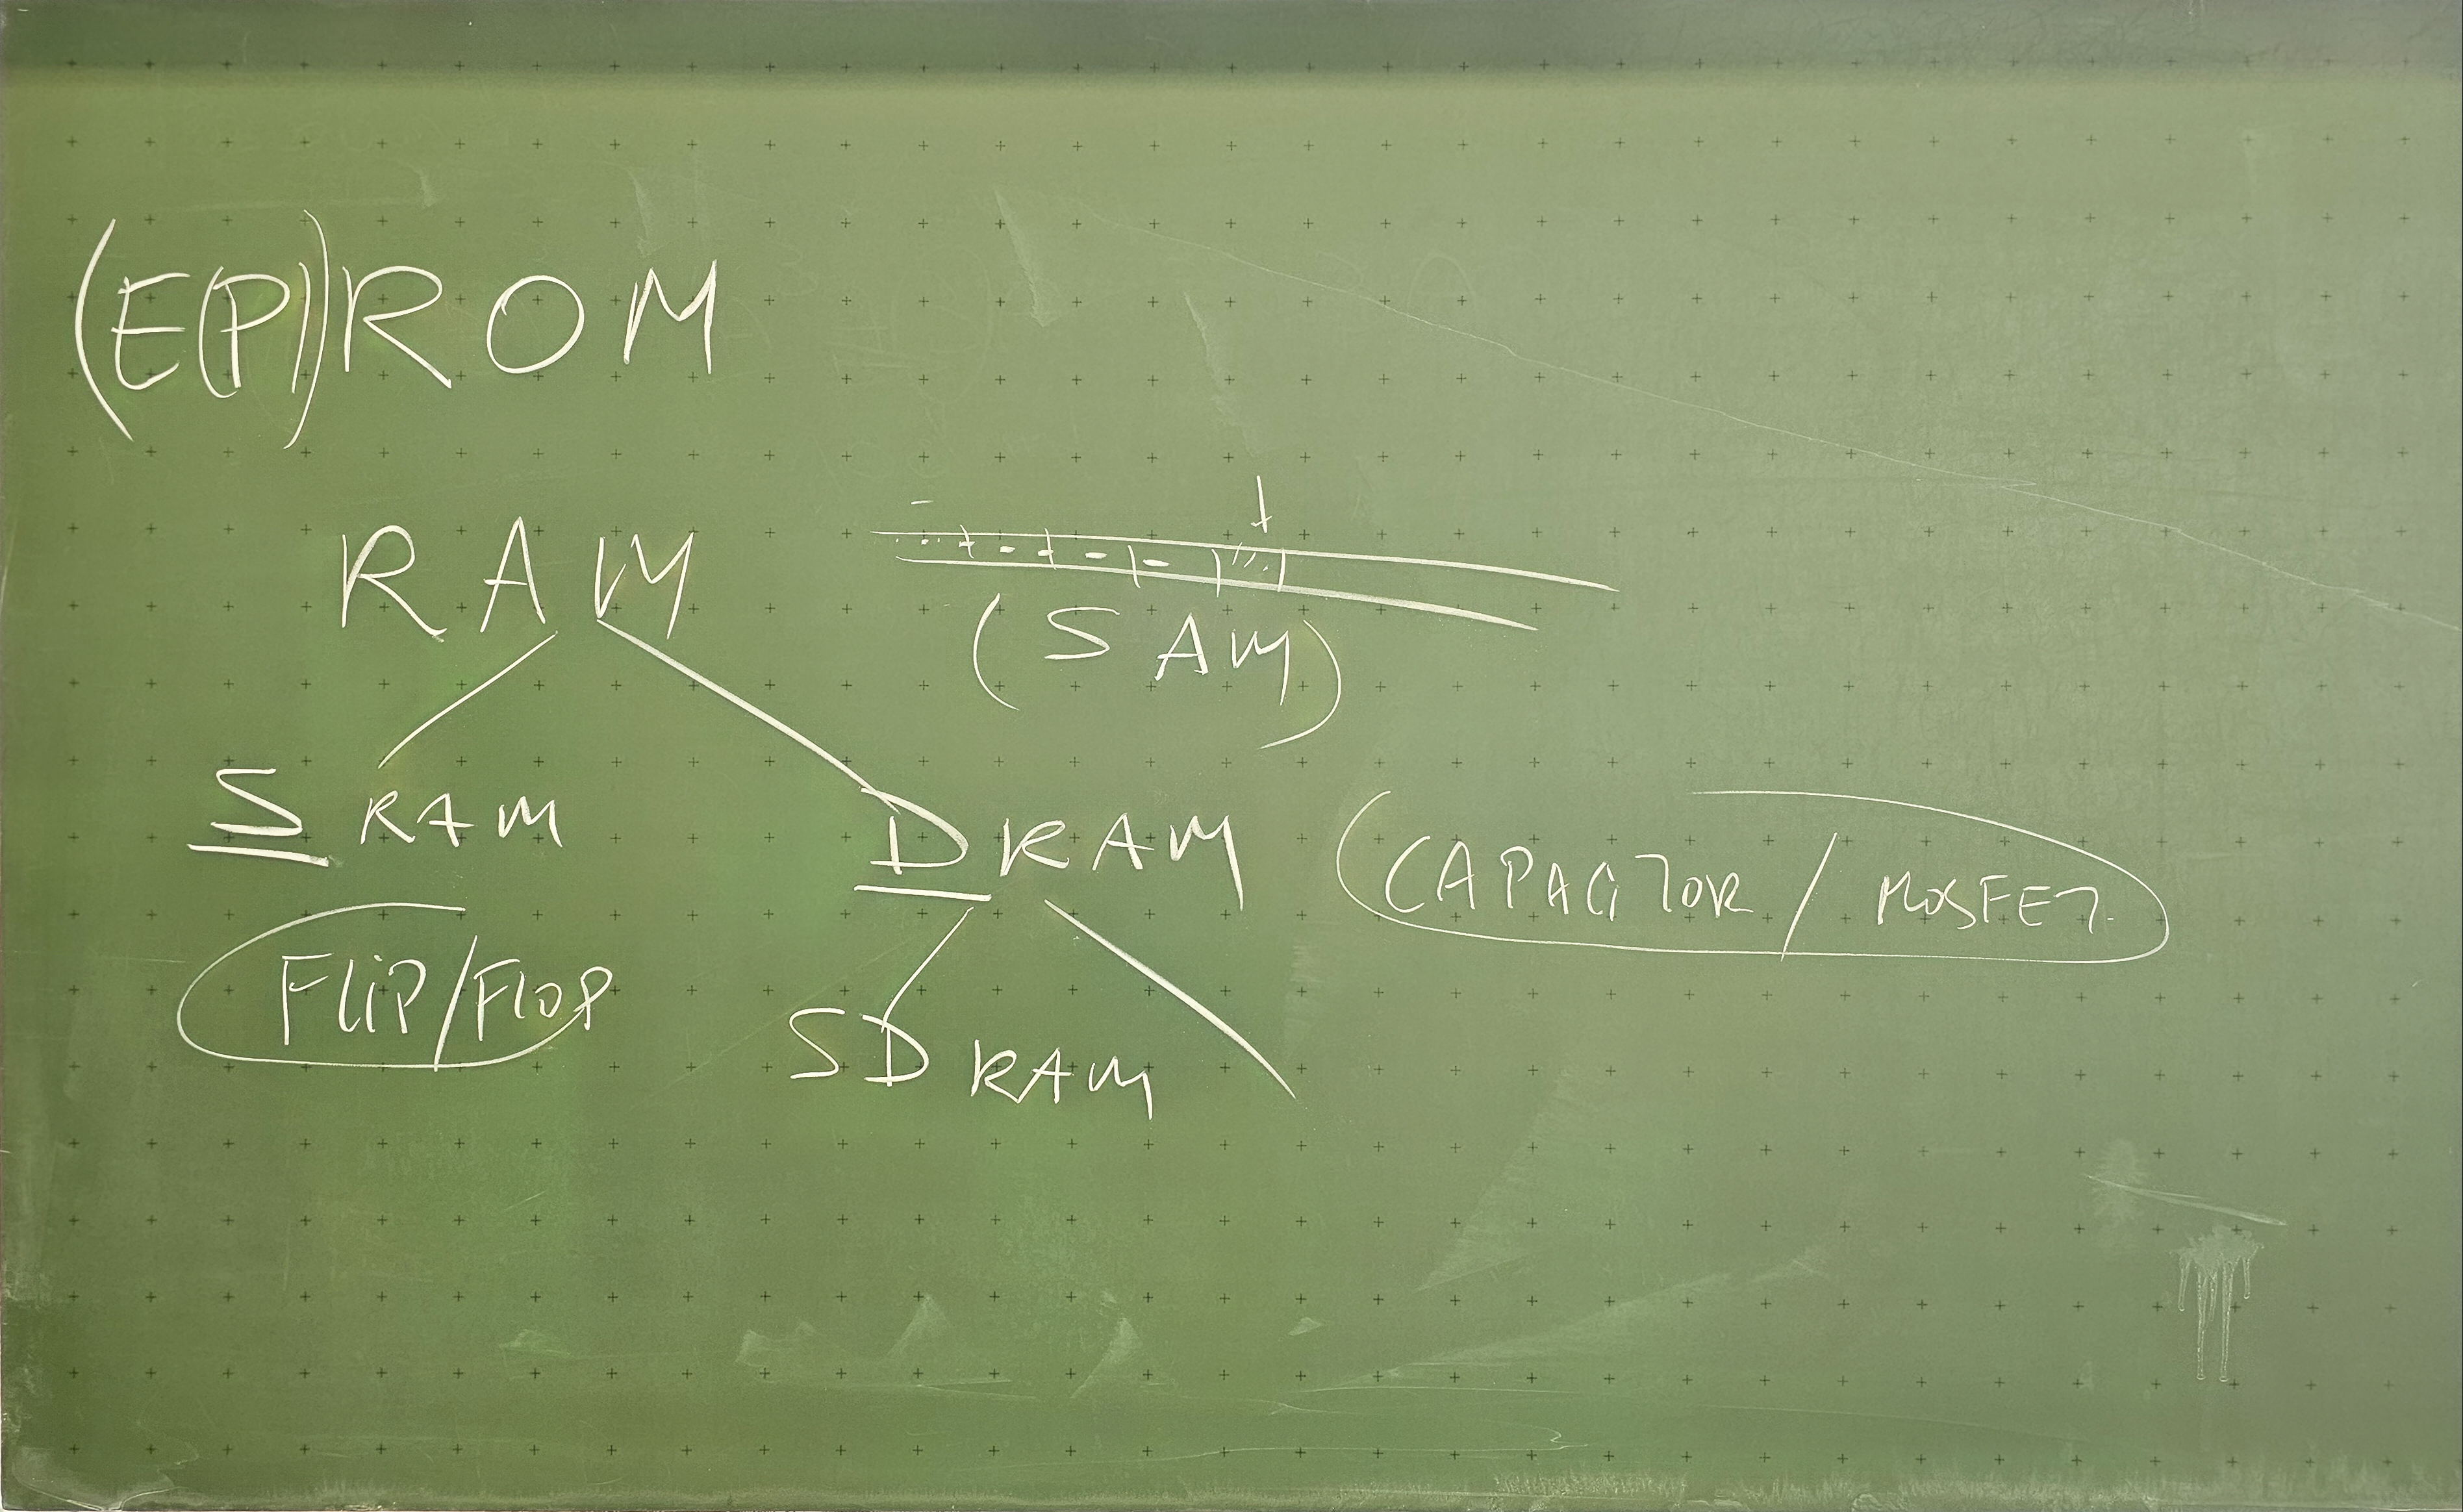 (E(P))ROM
RAM
(SAM)
SRAM
DRAM
CAPACITOR / MOSFET
FLiP/FLOP
SDRAM